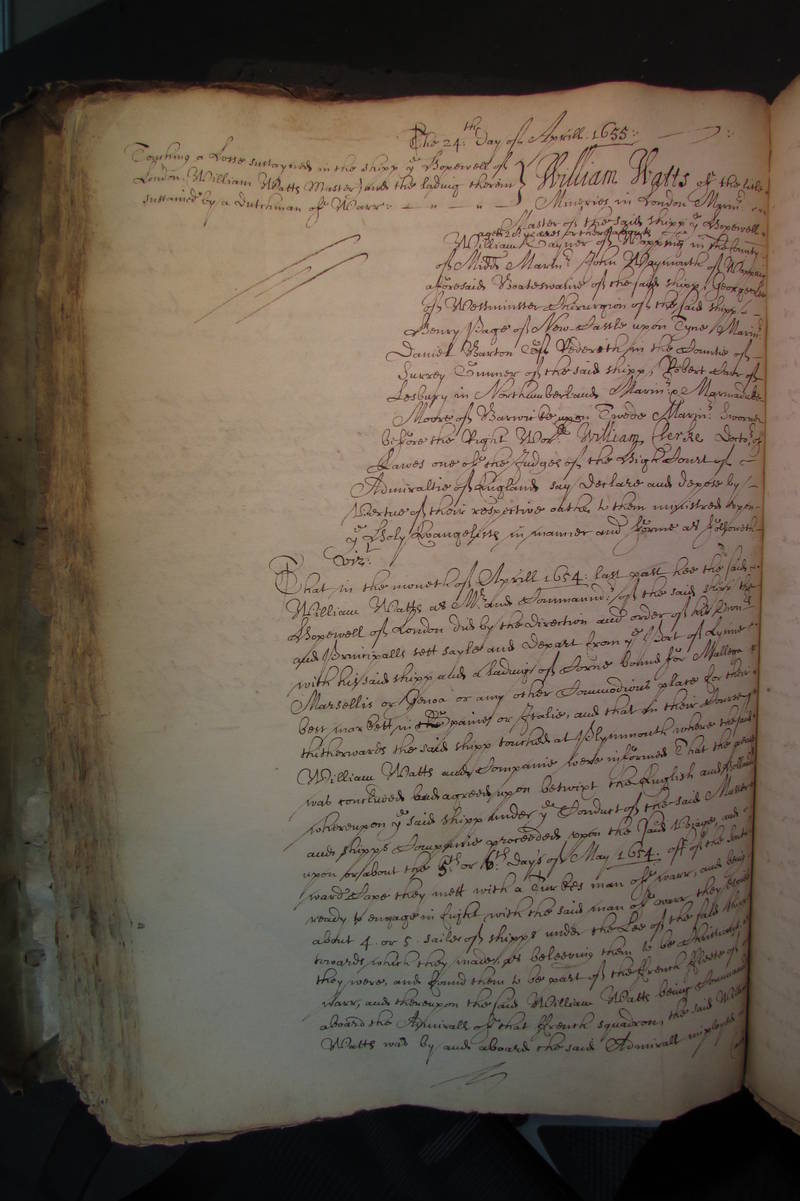 The 24th. Day of Aprill. 1655:
Touching a Losse sustayned in the shipp ye Hopewell of
London (William Watts Master) and the lading therein
sustained by a Dutchman of Warr:
William Watts of the little
Minories in London Marinr.
Master of the said shipp ye Hopewell
aged 28 yeares or thereabouts
William Tayner of Wapping in the County
of Midd Marinr. John Waymouth of Wapping
aforesaid Boateswaine of the said shipp, George
of Westminster Chirurgion of the said shipp
Henry Page of New Castle upon Tyne Marinr.
Daniel Barton of Redereith in the Countie of
Surrey Gunner of the said shipp, Robert of
Lesbury in Northumberland Marinr. & Marmaduke
Moore of Barwicke upon Tweede Marinr. Sworne
before the Right Worll. William Clerke Doctr. of
Lawes one of the Judges of the High Court of
Admiraltie of England say Declare and depose by
Vertue of their respective oathes to them ministred upon
ye Holy Evangelists in manner and forme as followeth
vizt:
That in the moneth of Aprill 1654: last past hee the said
William Watts as Mr. and Commandr. of the said shipp the
Hopewell of London did by the direction and order of his
and Principalls sett sayle and depart from ye Port of Lynne
with his said shipp and a lading of Corne bound for Mallega
Marsellis or Genoa or any other Commodious place for their
best markett in Spaine or Italie, and that in their Course
thitherwards the said shipp touched at Plymmouth where the said
William Watts and Companie were informed That the peace
was concluded and agreed upon betwixt the English and Holland
whereupon ye said shipp under ye Conduct of the said Master
and shipps Companie proceeded upon the said Viage, and
upon or about the 5th. or 6th. Day of May 1654. off of the
ward Cape they mett with a Turkes man of warr, and being
ready to engage in fight with the said man of warr they
about 4 or 5 sailes of shipps under the Lee of the said
towards which they made, as beleeving them to be Christians, as
they were, and found them to be part of the French Fleete of
warr, and thereupon the said William Watts being Commanded
aboard the Admirall of that French squadron, the said William
Watts was by and aboard the said Admirall